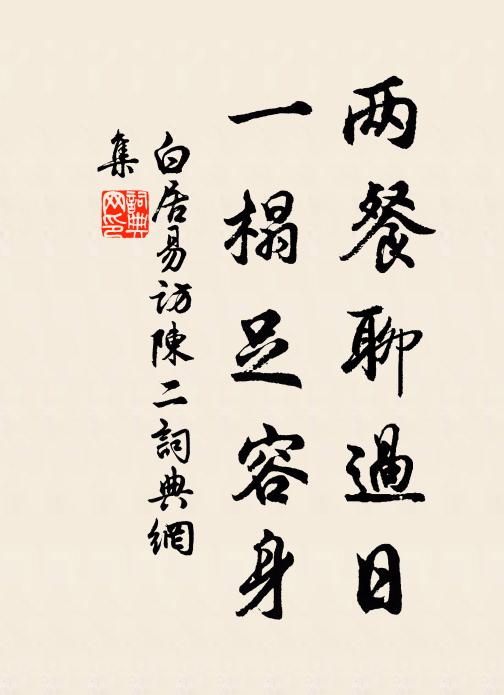 两餐聊過日
一榻足容身
白居易訪陳二詞典網
集
詞典
网印